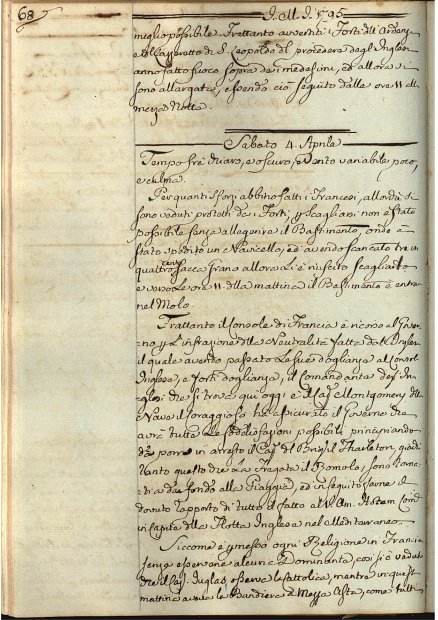 68
J. M. J. 1795
meglio possibile. Trattanto avvertiti i Forti dell' Ardenza
e del Casserotto di S. Leopoldo del procedere degl' Inglesi
anno fatto fuoco sopra dei medesimi, ed allora si
sono allargati, essendo ciò seguito dalle ore 11 alla
mezza Notte.
Sabato 4. Aprile
Tempo frà chiaro, e oscuro, e Vento variabile poco,
e calma.
Per quanti sforzi abbino fatti i Francesi, allorchè si
sono veduti protetti da i Forti, p Scagliarsi non è stato
possibile senza allegerire il Bastimento, onde è
stato spedito un Navicello, ed avendo scaricato tre in
quattro cento sacca Grano allora Li è riuscito scagliarlo
e verso Le ore 11 della mattina il Bastimento è entrato
nel Molo.
Trattanto il Console di Francia è ricorso al Gover-
no p L'infrazione della Neutralità fatta da l'Inglesi
il quale avendo passato Le sue doglianze al Console
Inglese, e forti doglianze, il Comandante degl' In-
glesi che si trova qui oggi e Cap. Montgomery della
Nave il Coraggioso ha assicurato il Governo che
avrà tutte Le sodisfazioni possibili principiando
dà porre in arresto il Cap. del Brigs Tharleton, giac
tanto questo che La Fregata il Romolo, sono torna-
ti a dar fondo alla Piaggia, ed in seguito farne il
dovuto rapporto di tutto il fatto al V. Am. Hotam Comd
in Capite della Flotta Inglese nel Mediterraneo.
Siccome è permesso ogni Religione in Francia
senza esservene alcuna Dominante, così si è veduto
che il Cap. osserva la Cattolica, mentre in questa
mattina aveva le Bandiere a Mezza Asta, come tutti